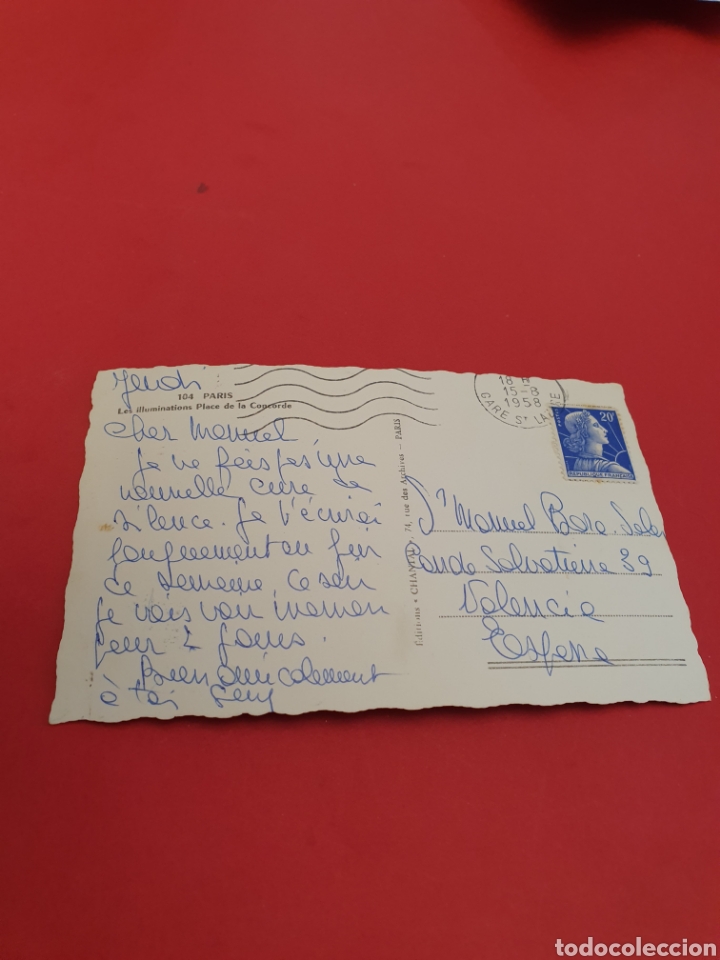 Jeudi
104 PARIS
Les illuminations Place de la Concorde
Cher Manuel,
Je ne fais pas une
nouvelle cure de
silence. Je t'écrirai
longuement en fin
de semaine. Ce soir
je vais voir maman
pour 2 jours.
Bien amicalement
à toi
Éditions CHANTAL, 74, rue des Archives - PARIS
18 H
15-8
1958
GARE St LAZARE
20F
REPUBLIQUE FRANÇAISE
Dr Manuel
Conde Salvatierra 39
Valencia
España
todocoleccion